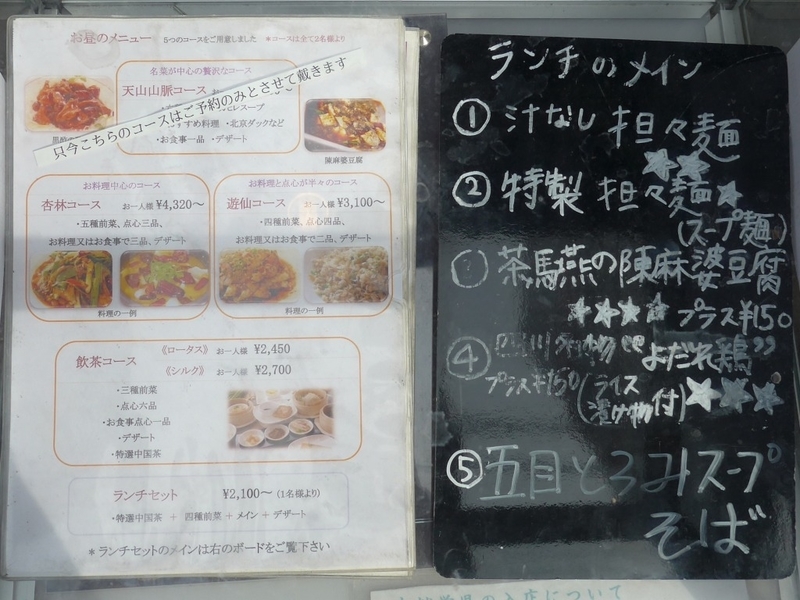 お昼のメニュー 5つのコースをご用意しました *コースは全て2名様より
名菜が中心の贅沢なコース
天山山脈コース お一人様
只今こちらのコースはご予約のみとさせて戴きます
スープ
すすめ料理 ・北京ダックなど
・お食事一品 ・デザート
陳麻婆豆腐
お料理中心のコース
杏林コース お一人様 ¥4,320～
・五種前菜、点心三品、
お料理又はお食事で三品、デザート
料理の一例
お料理と点心が半々のコース
遊仙コース お一人様 ¥3,100～
・四種前菜、点心四品、
お料理又はお食事で二品、デザート
料理の一例
飲茶コース
《ロータス》 お一人様 ¥2,450
《シルク》 お一人様 ¥2,700
・三種前菜
・点心六品
・お食事点心一品
・デザート
・特選中国茶
ランチセット ¥2,100～ (1名様より)
・特選中国茶 + 四種前菜 + メイン + デザート
*ランチセットのメインは右のボードをご覧下さい
ランチのメイン
① 汁なし担々麺
★★
② 特製担々麺 ★
(スープ麺)
③ 茶馬燕の陳麻婆豆腐
★★★★ プラス¥150
④ 四川名物"よだれ鶏"
プラス¥150 (ライス 漬け物付) ★★★
⑤ 五目とろみスープ
そば
の入店について